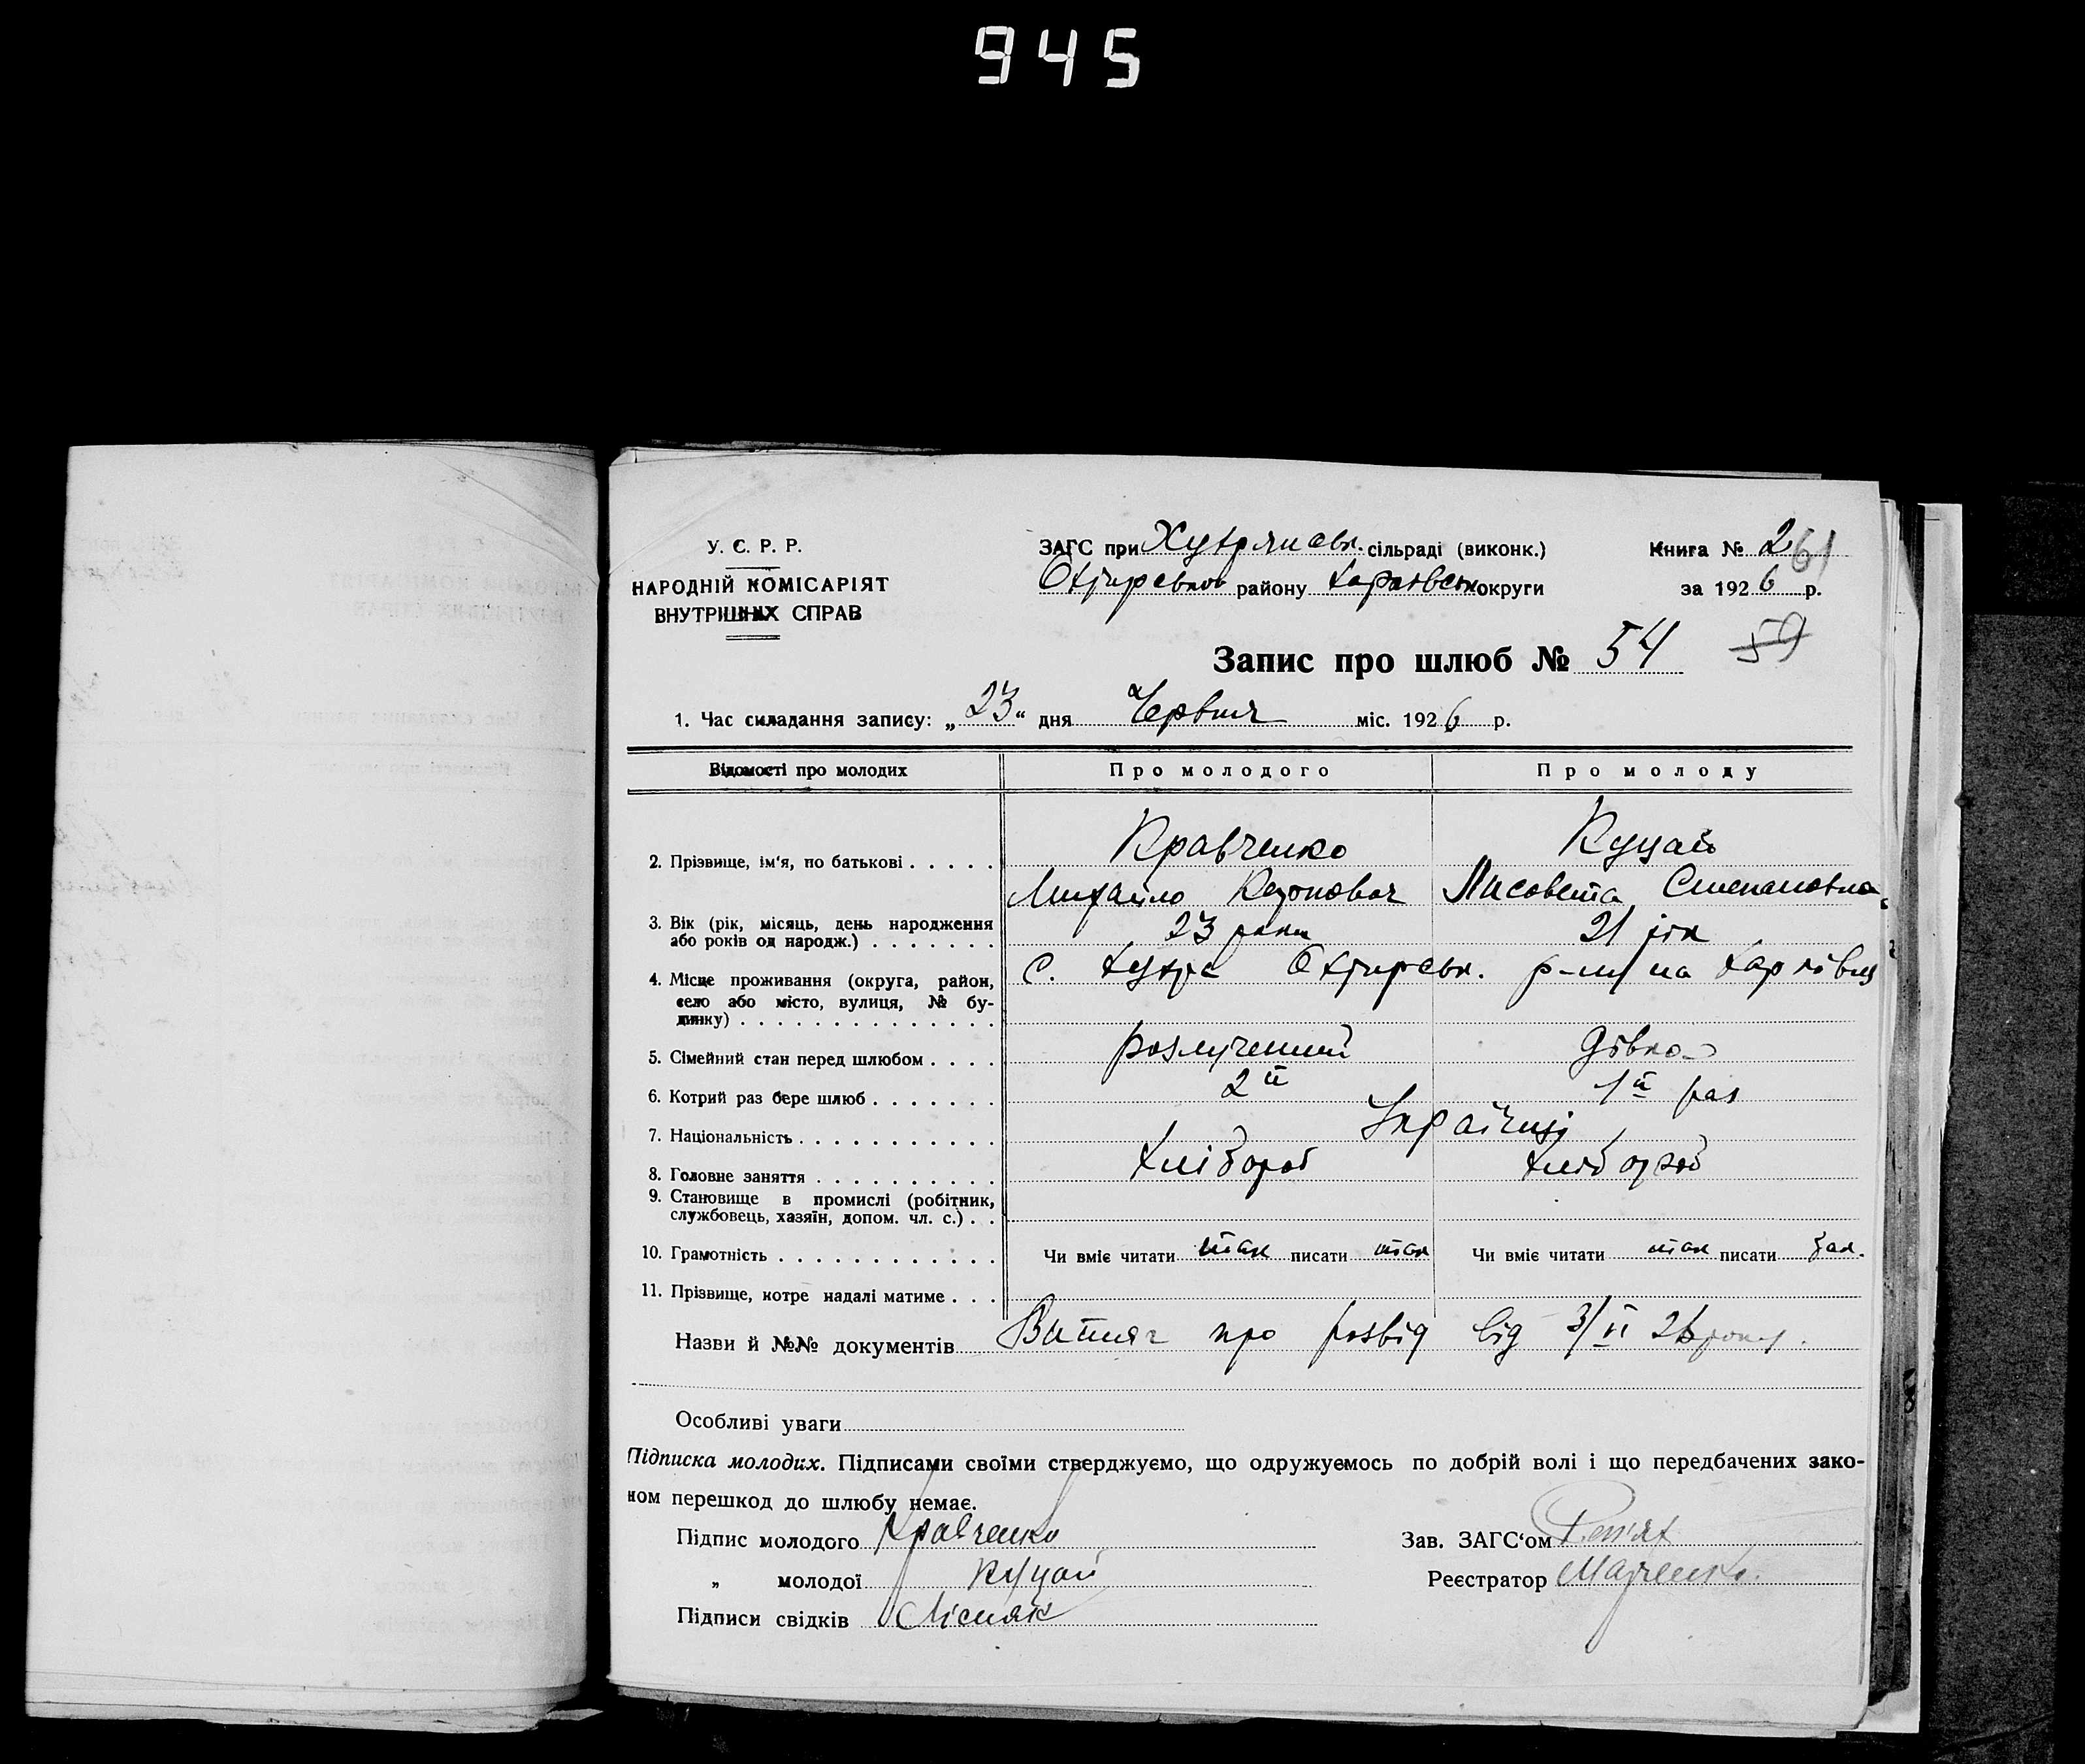 945
У. С. Р. Р.
НАРОДНІЙ КОМІСАРІЯТ
ВНУТРІШНІХ СПРАВ
ЗАГС при сільраді (виконк.)
району округи
Книга № 2 61
за 1926 р.
Запис про шлюб № 54 59
1. Час складання запису: „23“ дня Червня міс. 1926 р.
Відомості про молодих Про молодого Про молоду
Кравченко Куцай
2. Прізвище, ім'я, по батькові
Михайло Лисовета Степановна
3. Вік (рік, місяць, день народження 23 роки 21 рік
або років од народж.)
4. Місце проживання (округа, район, с.
село або місто, вулиця, № бу-
динку)
5. Сімейний стан перед шлюбом розлучений дівка
6. Котрий раз бере шлюб 2й 1й раз
7. Національність Українці
8. Головне заняття хлібороб хлібороб
9. Становище в промислі (робітник,
службовець, хазяїн, допом. чл. с.)
10. Грамотність Чи вміє читати так писати так Чи вміє читати так писати
11. Прізвище, котре надалі матиме
Назви й №№ документів Витяг про розвід від 3/VI 26 року.
Особливі уваги
Підписка молодих. Підписами своїми стверджуємо, що одружуємось по добрій волі і що передбачених зако-
ном перешкод до шлюбу немає.
Підпис молодого Кравченко
Зав. ЗАГС‘ом
„ молодої Куцай
Реєстратор
Підписи свідків Лісняк